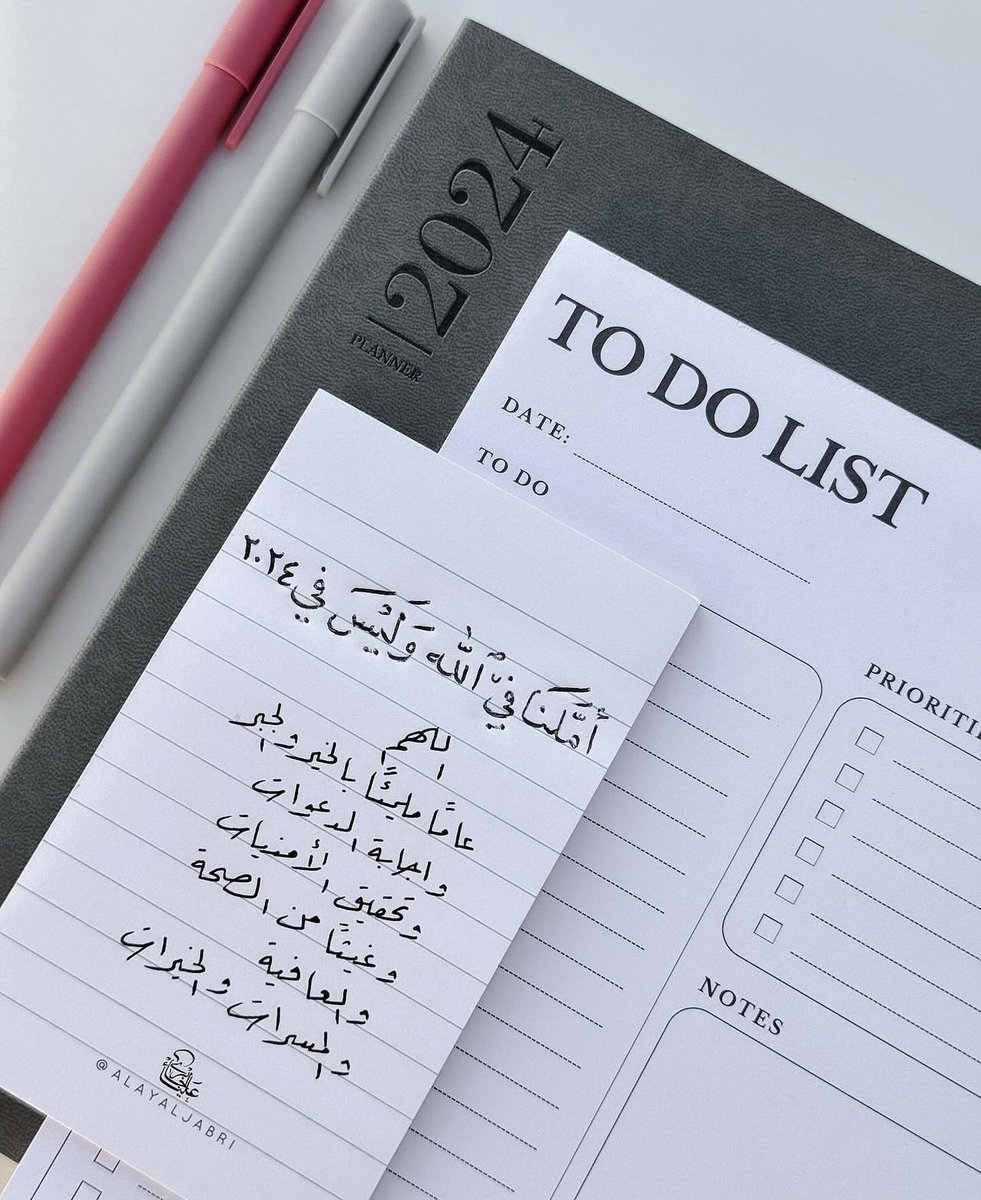 2024
PLANNER
TO DO LIST
DATE:
TO DO
PRIORITI
NOTES
أَمَلُنَا فِي اللّٰه وَلَيْسَ في ٢٠٢٤
اللهم
عامًا مليئًا بالخير والجبر
واجابة الدعوات
وتحقيق الأمنيات
وغيثًا من الصحة
والعافية
والمسرات والخيرات
علياء
@ALAYALJABRI